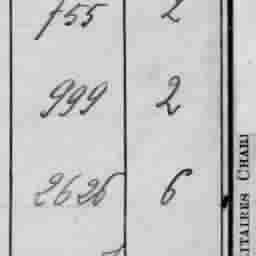 755 2
999 2
2626 6
LITAIRES CHARI